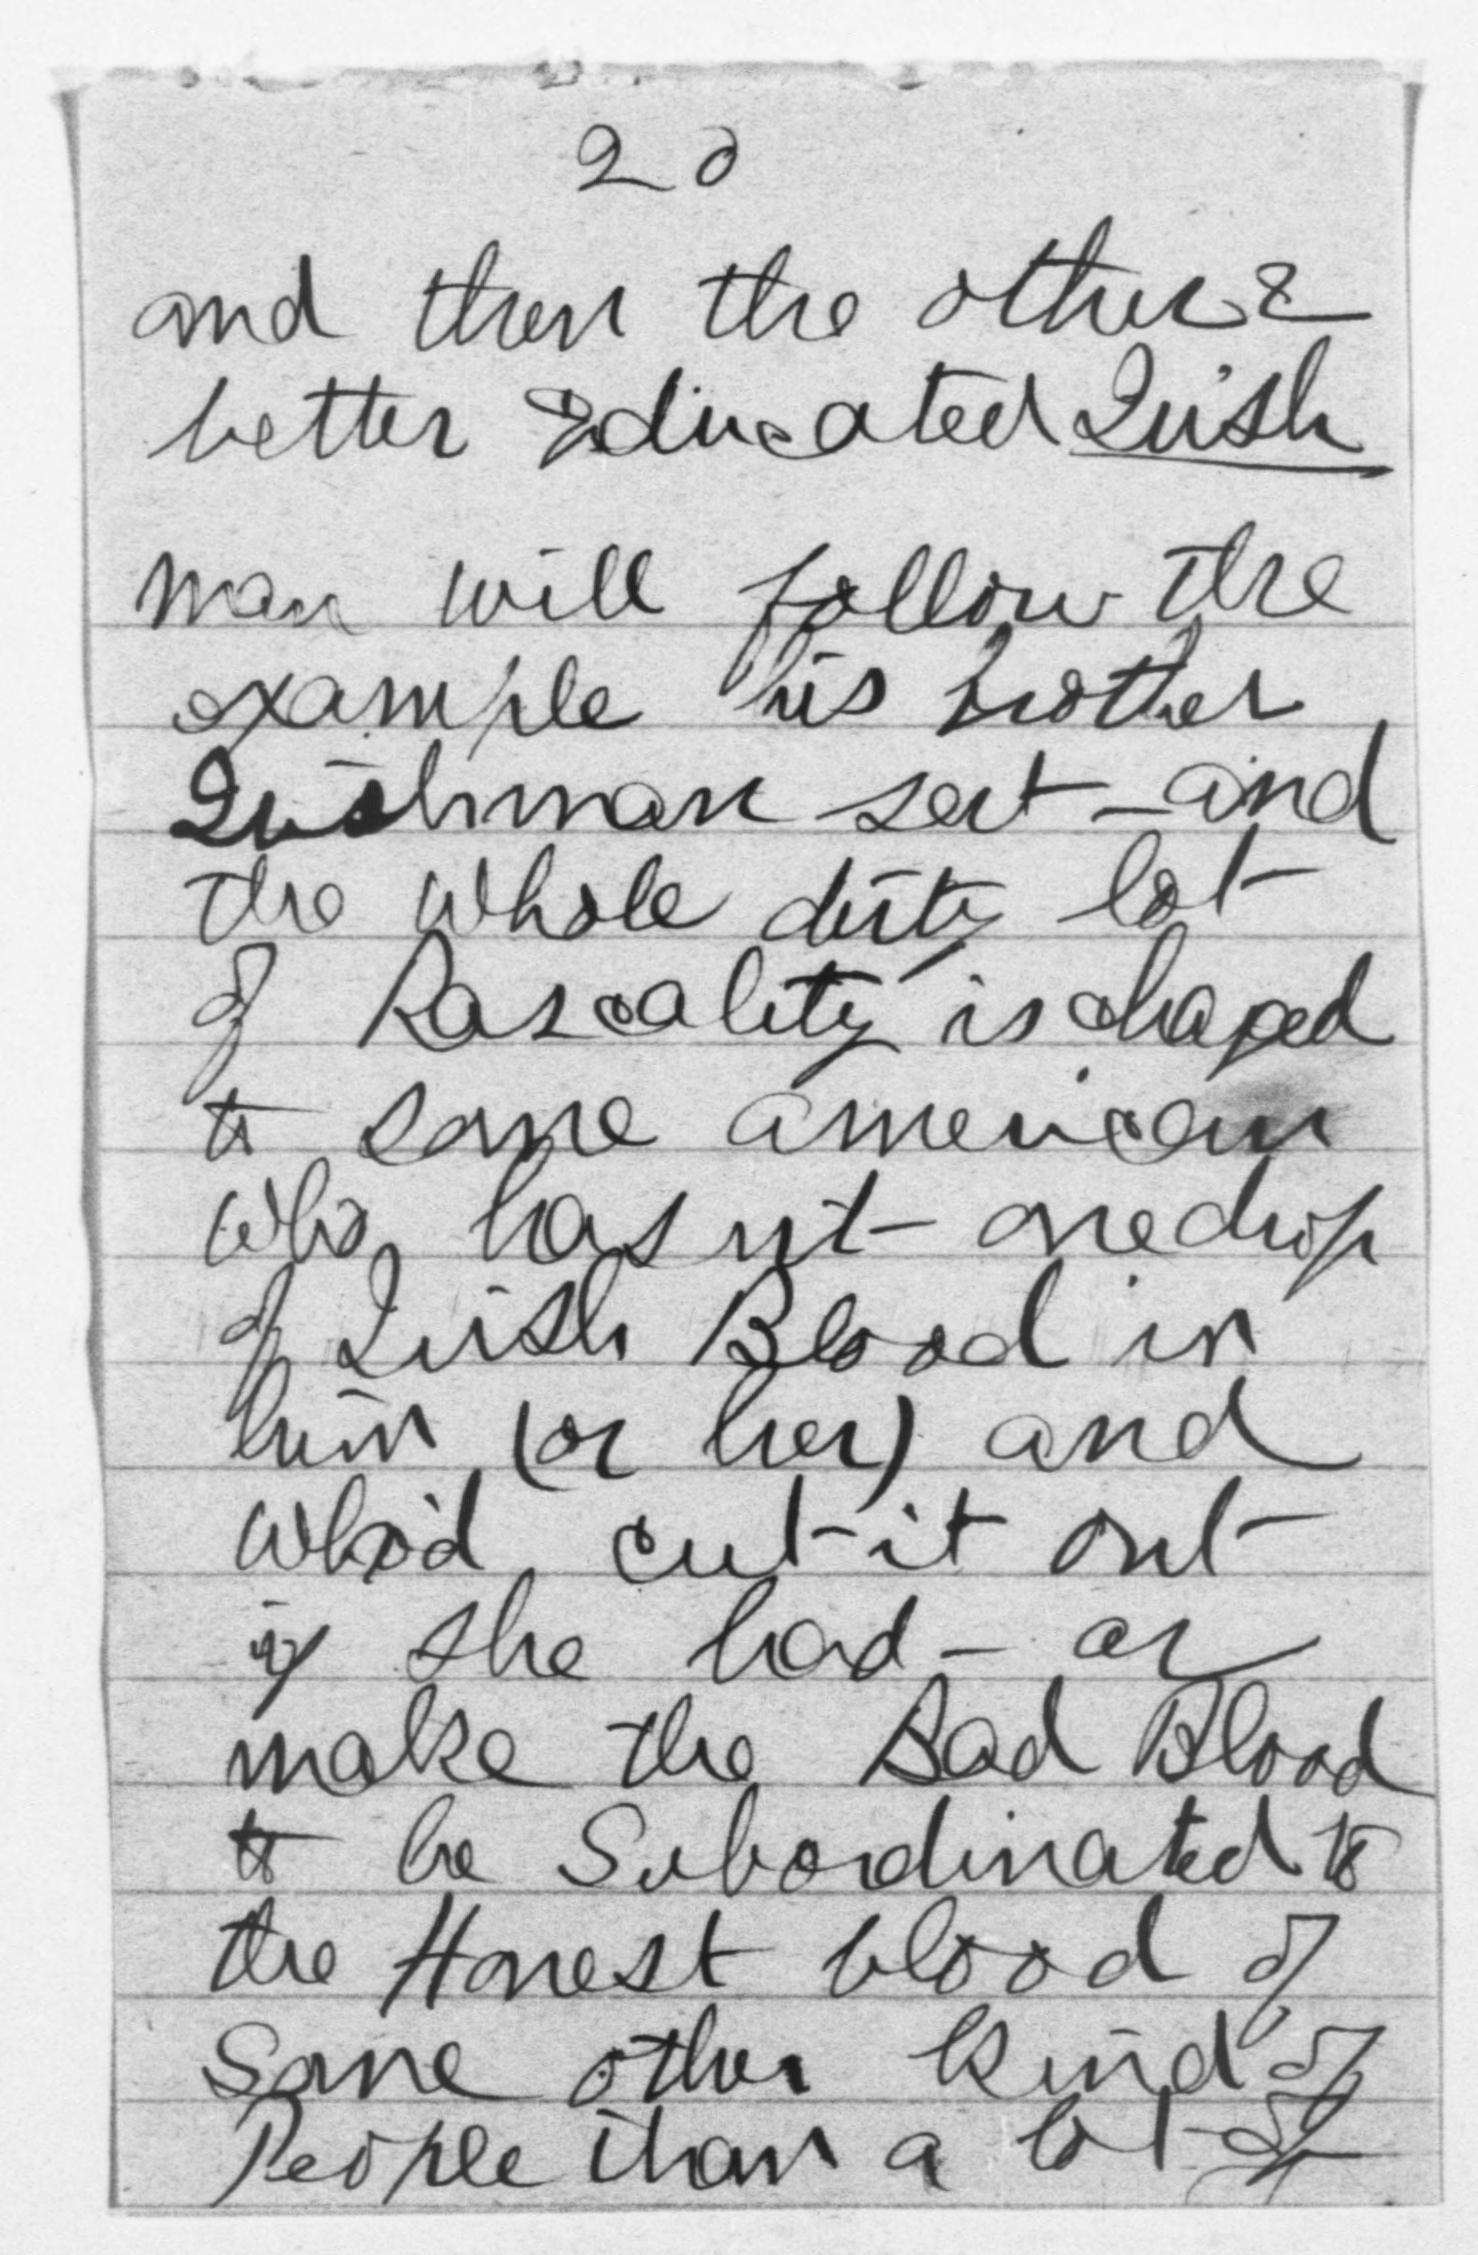 20
and then the other &
better Educated Irish
man will follow the
example his brother
Irishman set - and
the whole dirty lot
of Rascality is chaged
to some american
who has nt one drop
of Irish Blood in
him (or her) and
who'd cut it out
if she had - or
make the Bad Blood
to be Subordinated to
the Honest blood of
Some other kind of
People than a lot of